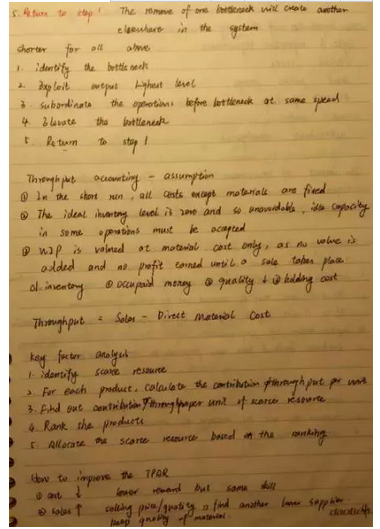 5. Return to step 1 The remove of one bottleneck will create another
elsewhere in the system
shorter for all above
1. identify the bottleneck
2. Exploit output highest level
3. subordinate the operations before bottleneck at same speed
4. Elevate the bottleneck
5. Return to step 1
Throughput accounting - assumption
① In the short run, all costs except materials are fixed
② The ideal inventory level is zero and so unavoidable, idle capacity
in some operations must be accepted
③ WIP is valued at material cost only, as no value is
added and no profit earned until a sale taken place
inventory ① occupaid money ② quality ↓ ③ holding cost
Throughput = Sales - Direct Material Cost
key factor analysis
1. identify scarce resource
2. For each product, calculate the contribution / throughput per unit
3. Find out contribution / through per unit of scarce resource
4. Rank the products
5. Allocate the scarce resource based on the ranking
How to improve the TPAR
① cost ↓ lower reward but same skill
② sales ↑ selling price/quality find another lower supplier
keep quality of material